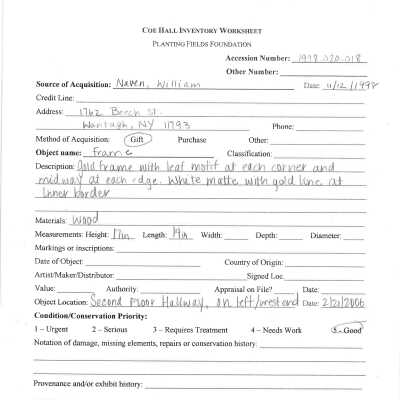 COE HALL INVENTORY WORKSHEET
PLANTING FIELDS FOUNDATION
Accession Number: 1998.020.018
Other Number:
Source of Acquisition: Naven, William Date: 4/12/1998
Credit Line:
Address: 1762 Beech St.
Wantagh, NY 11793 Phone:
Method of Acquisition: Gift Purchase Other:
Object name: Frame Classification:
Description: Gold frame with leaf motif at each corner and
midway at each edge. White matte with gold line at
inner border
Materials: Wood
Measurements: Height: 17in Length: 19in Width: Depth: Diameter:
Markings or inscriptions:
Date of Object: Country of Origin:
Artist/Maker/Distributor: Signed Loc.
Value: Authority: Appraisal on File? Date:
Object Location: Second Floor Hallway, on left/west end Date: 2/21/2006
Condition/Conservation Priority:
1 – Urgent 2 – Serious 3 – Requires Treatment 4 – Needs Work 5 - Good
Notation of damage, missing elements, repairs or conservation history:
Provenance and/or exhibit history: